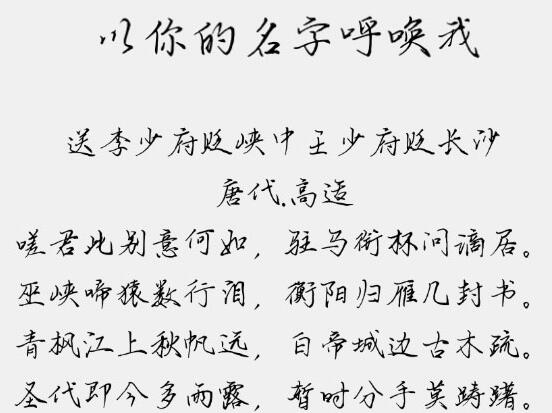 以你的名字呼唤我
送李少府贬峡中王少府贬长沙
唐代.高适
嗟君此别意何如，驻马衔杯问谪居。
巫峡啼猿数行泪，衡阳归雁几封书。
青枫江上秋帆远，白帝城边古木疏。
圣代即今多雨露，暂时分手莫踌躇。